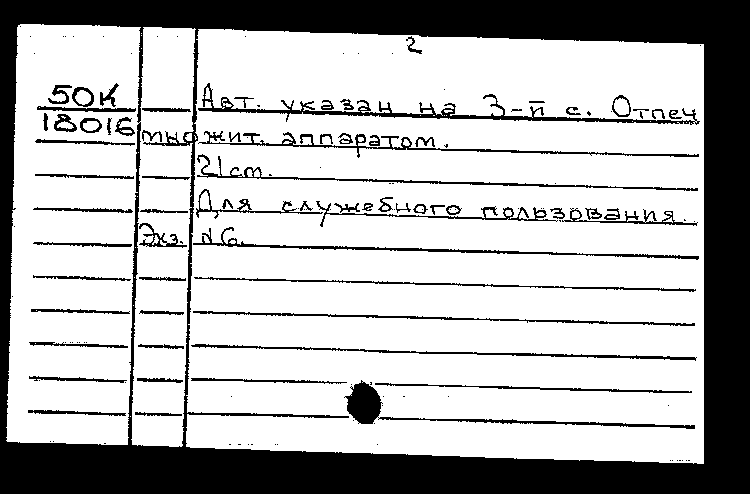 2
50К Авт. указан на 3-й с. Отпеч
18016 множит. аппаратом.
21 см.
Для служебного пользования.
Экз. № 6.